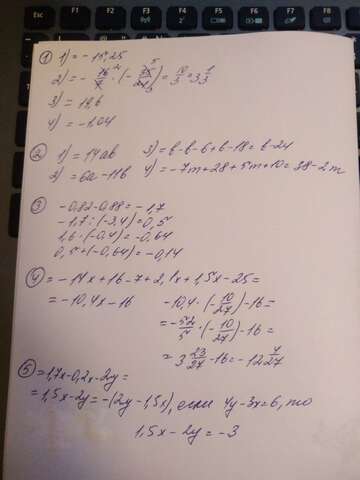 ① 1) = -15,25
2) = - 16/7 · (- 35/24) = 10/3 = 3 1/3
3) = 19,6
4) = -1,04
② 1) = 14ab 3) = b-b-6+b-18 = b-24
2) = 6a-11b 4) = -7m+28+5m+10 = 38-2m
③ -0,82-0,88 = -1,7
-1,7 : (-3,4) = 0,5
1,6 · (-0,4) = -0,64
0,5+(-0,64) = -0,14
④ = -14x+16-7+2,1x+1,5x-25 =
= -10,4x-16 -10,4 · (- 10/27) -16 =
= - 52/5 · (- 10/27) -16 =
= 3 23/27 -16 = -12 4/27
⑤ = 1,7x-0,2x-2y =
= 1,5x-2y = -(2y-1,5x), если 4y-3x=6, то
1,5x-2y = -3